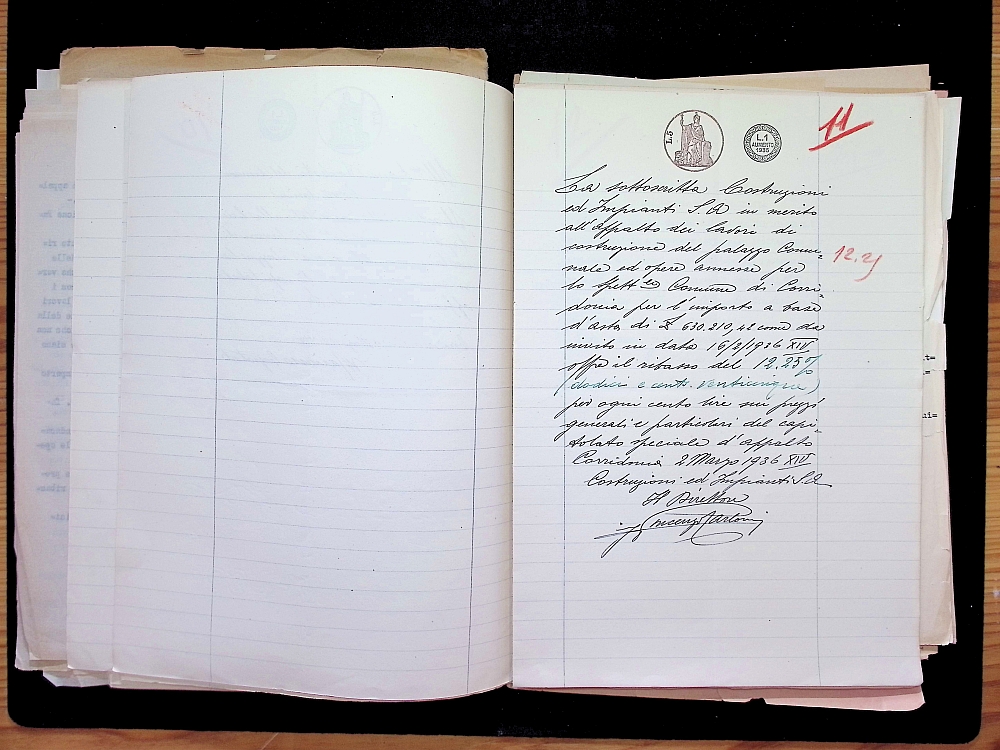 L.5
L.1
AUMENTO
1935
11
La sottoscritta Costruzioni
ed Impianti S.A in merito
all'Appalto dei lavori di
costruzione del palazzo Comu-
nale ed opere annesse per
lo Spett.le Comune di Corri-
donia per l'importo a base
d'asta di £ 630.210,42 come da
invito in data 16/2/1936 XIV
offre il ribasso del 12.25%
(dodici e cent. venticinque)
per ogni cento lire sui prezzi
generali e particolari del capi-
tolato speciale d'appalto
Corridonia 2 Marzo 1936 XIV
Costruzioni ed Impianti S.A
Il Direttore
12.25